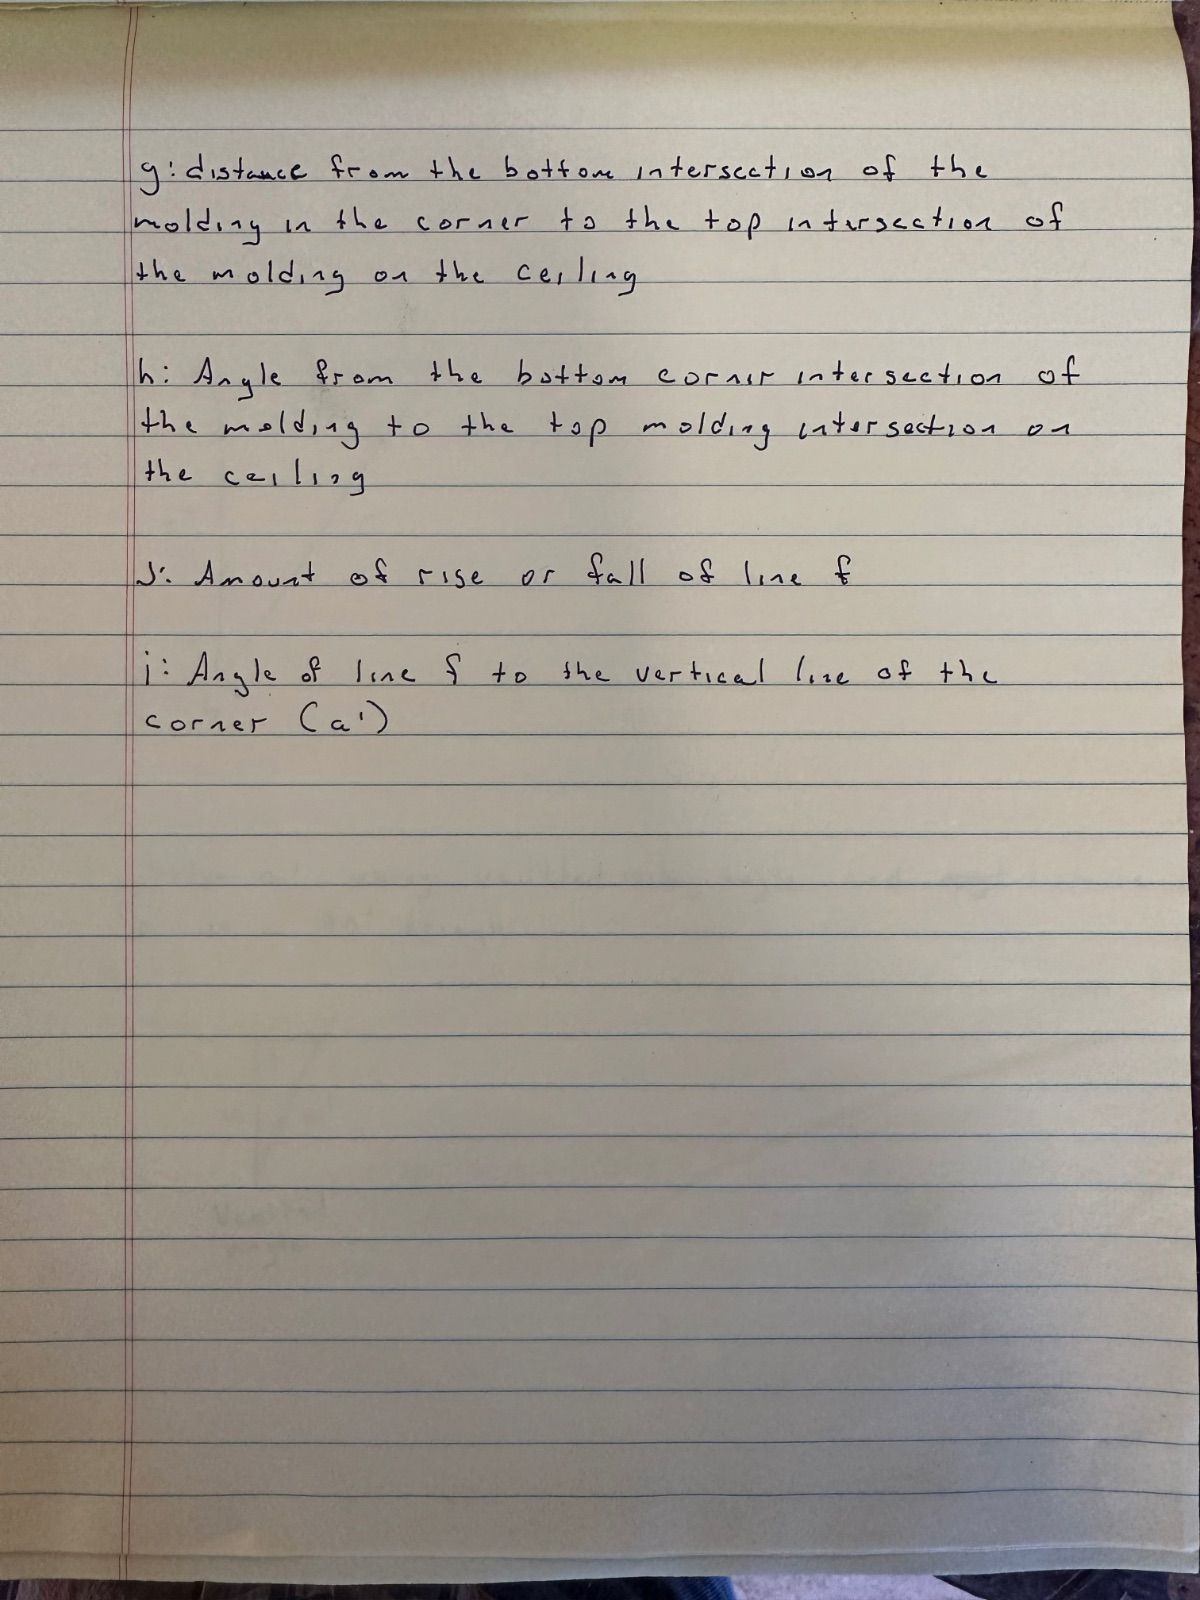 g: distance from the bottom intersection of the
molding in the corner to the top intersection of
the molding on the ceiling
h: Angle from the bottom corner intersection of
the molding to the top molding intersection on
the ceiling
J: Amount of rise or fall of line f
j: Angle of line f to the vertical line of the
corner (a')
Vaulted